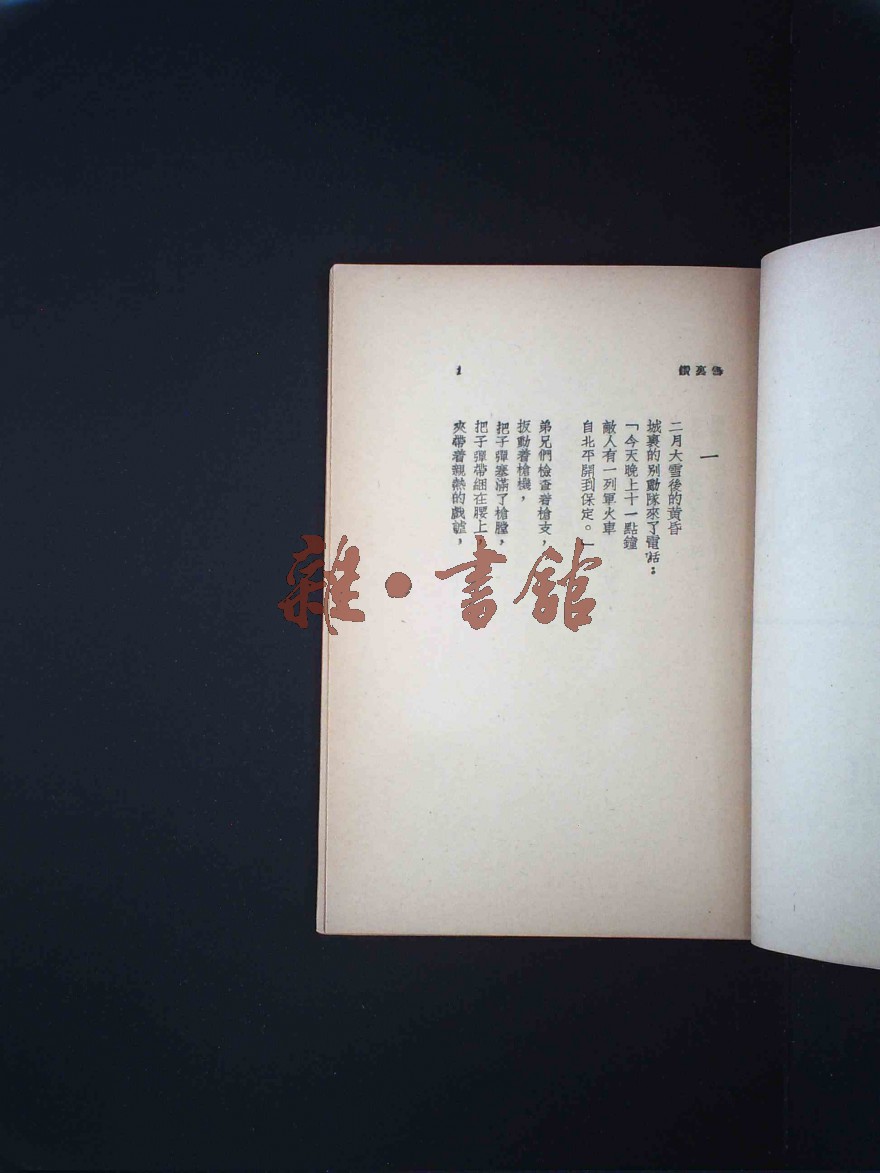 雪裏鑽
一
二月大雪後的黃昏
城裏的別動隊來了電話：
「今天晚上十一點鐘
敵人有一列軍火車
自北平開到保定。」
弟兄們檢查着槍支，
扳動着槍機，
把子彈塞滿了槍膛，
把子彈帶綑在腰上，
夾帶着親熱的戲謔，
1
雜·書館